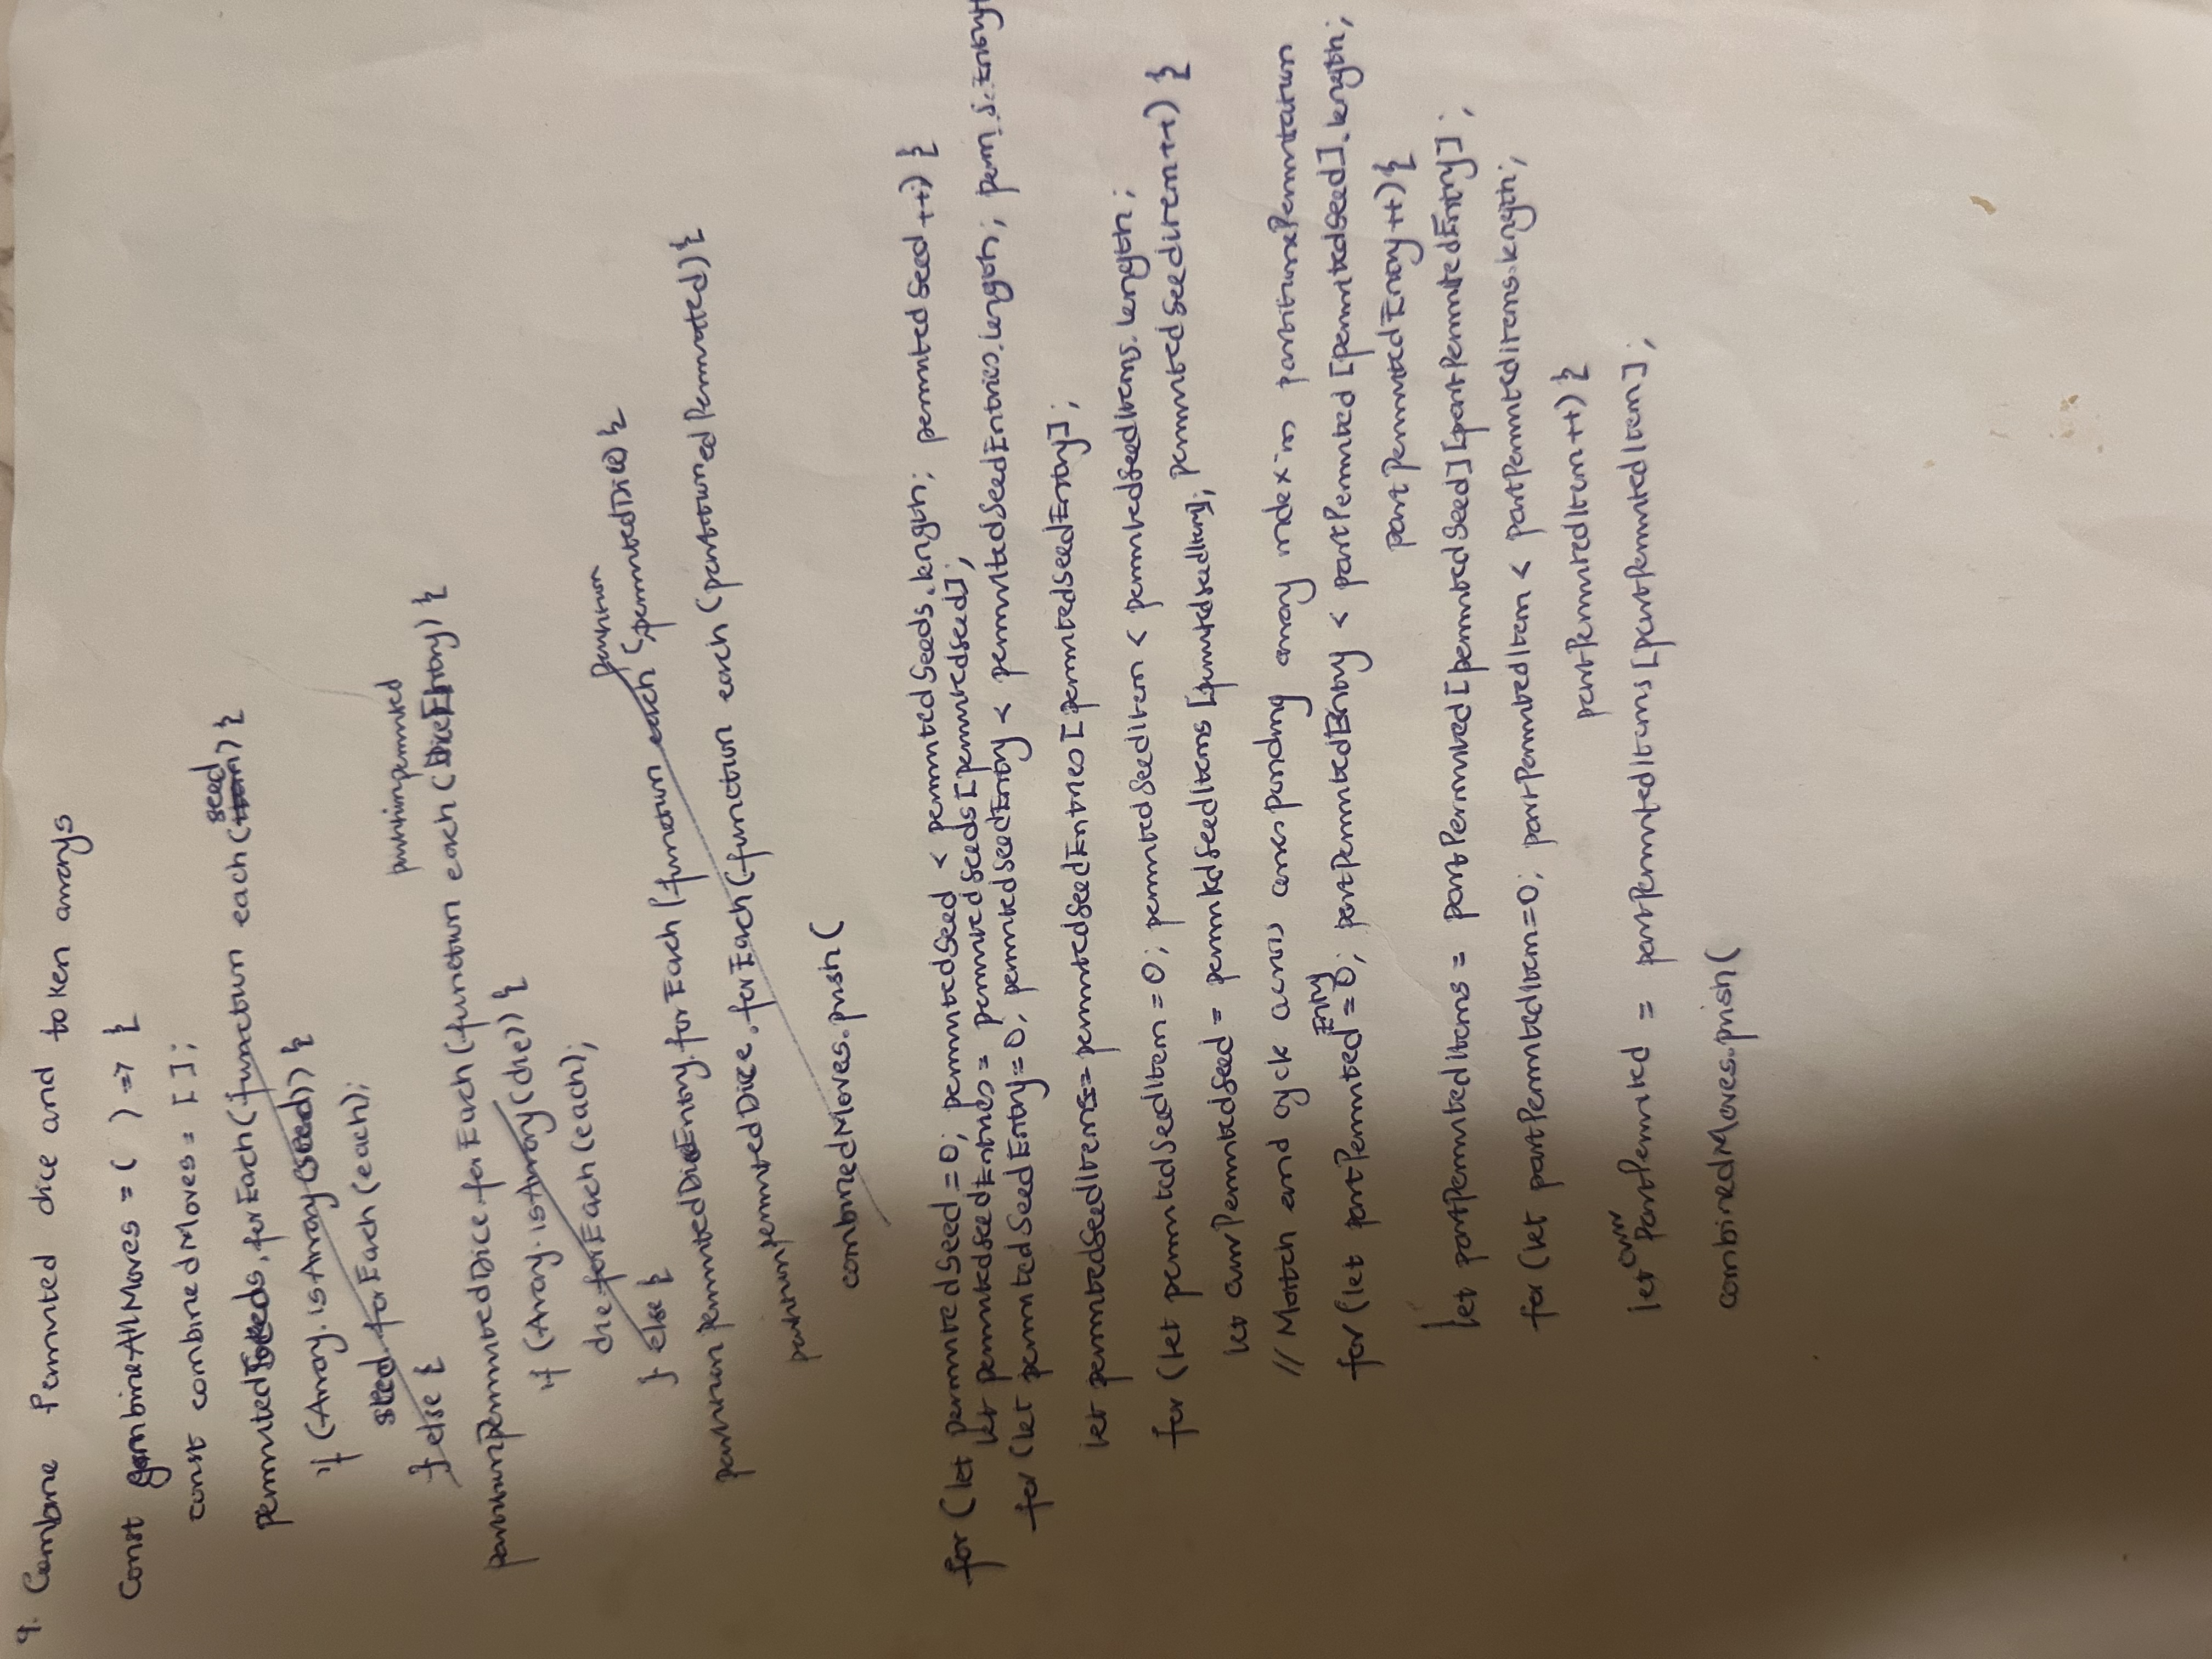 9. Combine Permuted dice and token arrays
Const combineAllMoves = ( ) => {
const combinedMoves = [ ];
permutedSeeds.forEach(function each(item seed) {
if (Array.isArray(seed)) {
seed.forEach(each);
} else {
partitionpermutedDice.forEach(function each (partitionpermutedDiceEntry) {
if (Array.isArray(die)) {
die.forEach(each);
} else {
partitionpermutedDiceEntry.forEach(function each (partitionpermutedDice) {
partitionpermutedDice.forEach(function each (partitionedPermuted) {
combinedMoves.push(
for (let permutedSeed = 0; permutedSeed < permutedSeeds.length; permutedSeed++) {
let permutedSeedEntries = permutedSeeds[permutedSeed];
for (let permutedSeedEntry = 0, permutedSeedEntry < permutedSeedEntries.length; perm.S.Entry+
let permutedSeedItems = permutedSeedEntries[permutedSeedEntry];
for (let permutedSeedItem = 0; permutedSeedItem < permutedSeedItems.length;
permutedSeedItem++) {
let currPermutedSeed = permutedSeedItems[permutedSeedItem];
// Match and cycle across corresponding array index in partitionPermutation
for (let partPermutedEntry = 0; partPermutedEntry < partPermuted[permutedSeed].length;
partPermutedEntry++) {
let partPermutedItems = partPermuted[permutedSeed][partPermutedEntry];
for (let partPermutedItem = 0; partPermutedItem < partPermutedItems.length;
partPermutedItem++) {
let currPartPermuted = partPermutedItems[partPermutedItem];
combinedMoves.push(